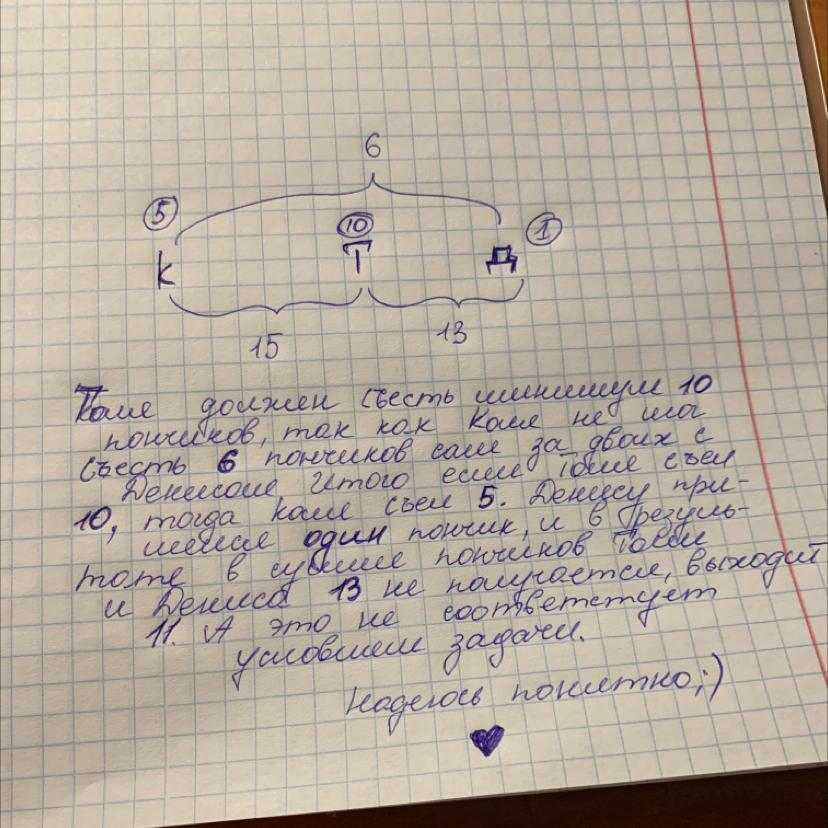 6
5 10 1
К Т Д
15 13
Толе должен съесть минимум 10
пончиков, так как Коля не мог
съесть 6 пончиков сам за двоих с
Денисом Итого если Толе съел
10, тогда Коля съел 5. Денису при-
шёлся один пончик, и в резуль-
тате в сумме пончиков Толи
и Дениса 13 не получается, выходит
11. А это не соответстует
условием задачи.
Надеюсь понятно;)